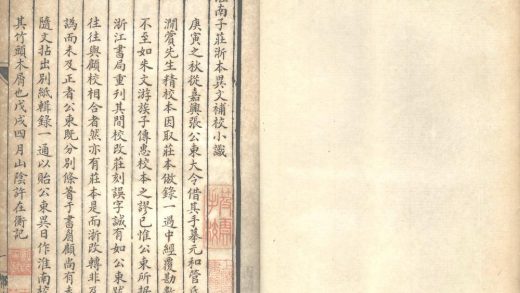 淮南子莊浙本異文補校小識
庚寅之秋從嘉興張公東大令借其手摹元和管氏
瀾賞先生精校本因取莊本倣錄一過中經覆勘數
不至如朱文游族子傳悳校本之謬已惟公東所据
浙江書局重列其間校改莊刻誤字誠有如公東跋
往往與顧校相合者然亦有莊本是而浙改轉非及
譌而未及正者公東既分別條著于書眉顧尚有未
隨文拈出別紙輯錄一通以貽公東異日作淮南校
其竹頭木屑也戊戌四月山陰許在衡記